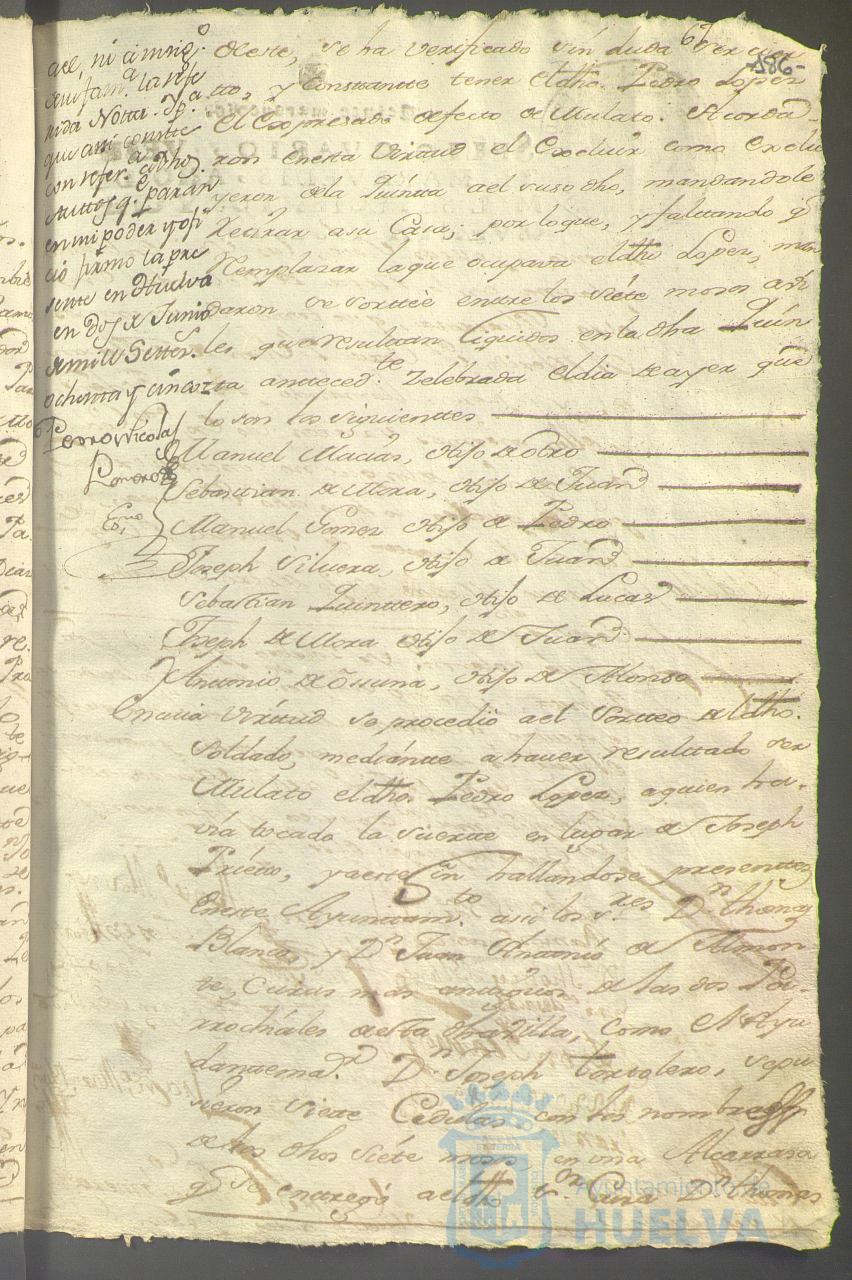 67
186
ael, ni
la refe
rida Notta. Ypª
que assi conste
con refer.ª a dhos
Auttos q.e paran
en mi poder y ofi
cio firmo la pre
sente en Huelva
en dos de Junio
de mill Settes.
ochenta y cinco
Pedro Nicolas
Romero
Esno
de este, se ha verificado sin duda ser cier
tto, y Constante tener el dho. Pedro Lopez
el Expresado defecto de Mulato. Acorda
ron en esta virtud el Excluir como Exclu
yeron de la Quinta a el suso dho, mandandole
Retirar a su Casa; por lo que, y faltando qn
Remplazar la que ocupava el dho Lopez, man
daron se sorttèe entre los siéte mosos
les que resultan liquidos en la dha Quin
ta anteced.te Zelebrada el dia de ayer que
lo son los siguienttes
Manuel Macias, Hijo de otro
Sebastian de Mora, Hijo de Juan
Manuel Gomez Hijo de Pedro
Joseph Silvera, Hijo de Juan
Sebastian Quinttero, Hijo de Lucas
Joseph de Mora Hijo de Juan
Y Antonio de Ossuna, Hijo de Alonso
En cuia virttud se procedió a el Sorteo de el dho.
Soldado, mediante a haver resulttado ser
Mulato el dho. Pedro Lopez, a quien ha
vía tocado la suertte en lugar de Joseph
Priéto, y a este fin hallandose presenttes
En este Ayuntam.to assi los S.res Dn Thomas
Blanco, y Dn Juan Antonio de Almon
te, Curas mas antiguos de las dos Pa
rrochiáles de esta dha Villa, como el Ayu
dante ma.r Dn Joseph Tortolero, se pu
siéron siete Cedulas con los nombres
de los dhos siéte mosos, en una Alcarrasa
q.e se entregó a el dho S.or Cura Dn Thomas
Ayuntamiento de
HUELVA